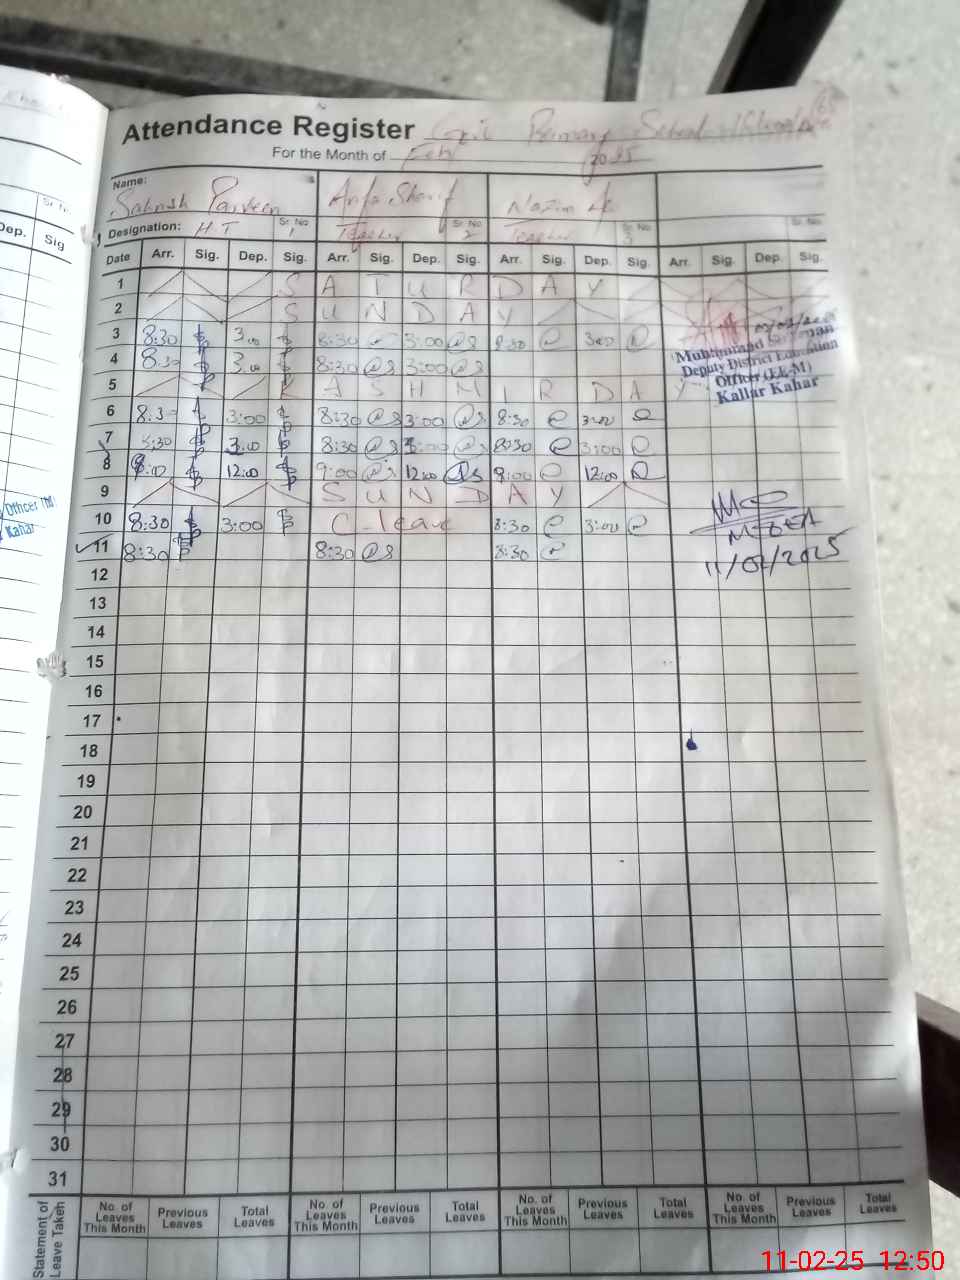 Attendance Register
Primary School
For the Month of Feb 2025
Name:
Parveen Arfa Sharif
Sr. No Sr. No Sr. No Sr. No
Designation: H.T 1 Teacher 2 Teacher 3
Date Arr. Sig. Dep. Sig. Arr. Sig. Dep. Sig. Arr. Sig. Dep. Sig. Arr. Sig. Dep. Sig.
1 S A T U R D A Y
2 S U N D A Y
3 8:30 3:00 8:30 3:00 8:30 3:00
Deputy District Education
4 8:30 3:00 8:30 3:00
Officer (EE-M)
Kallar Kahar
5 K A S H M I R D A Y
6 8:30 3:00 8:30 3:00 8:30 3:00
7 8:30 3:00 8:30 3:00 8:30 3:00
8 12:00 9:00 12:00 9:00 12:00
9 S U N D A Y
10 8:30 3:00 C-leave 8:30 3:00
11 8:30 8:30 8:30
11/02/2025
12
13
14
15
16
17
18
19
20
21
22
23
24
25
26
27
28
29
30
31
Statement of Leave Taken
No. of Leaves This Month Previous Leaves Total Leaves No. of Leaves This Month Previous Leaves Total Leaves No. of Leaves This Month Previous Leaves Total Leaves No. of Leaves This Month Previous Leaves Total Leaves
Dep. Sig
Officer (M)
Kahar
11-02-25 12:50